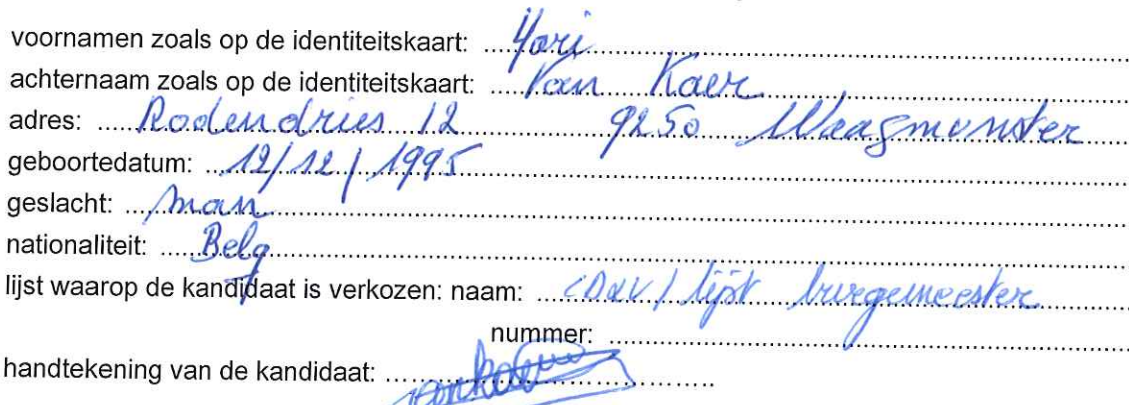 voornamen zoals op de identiteitskaart: Yari
achternaam zoals op de identiteitskaart: Van Kaer
adres: Rodendries 12 9250 Waasmunster
geboortedatum: 12/12/1995
geslacht: man
nationaliteit: Belg
lijst waarop de kandidaat is verkozen: naam: CD&V / lijst burgemeester
nummer:
handtekening van de kandidaat: